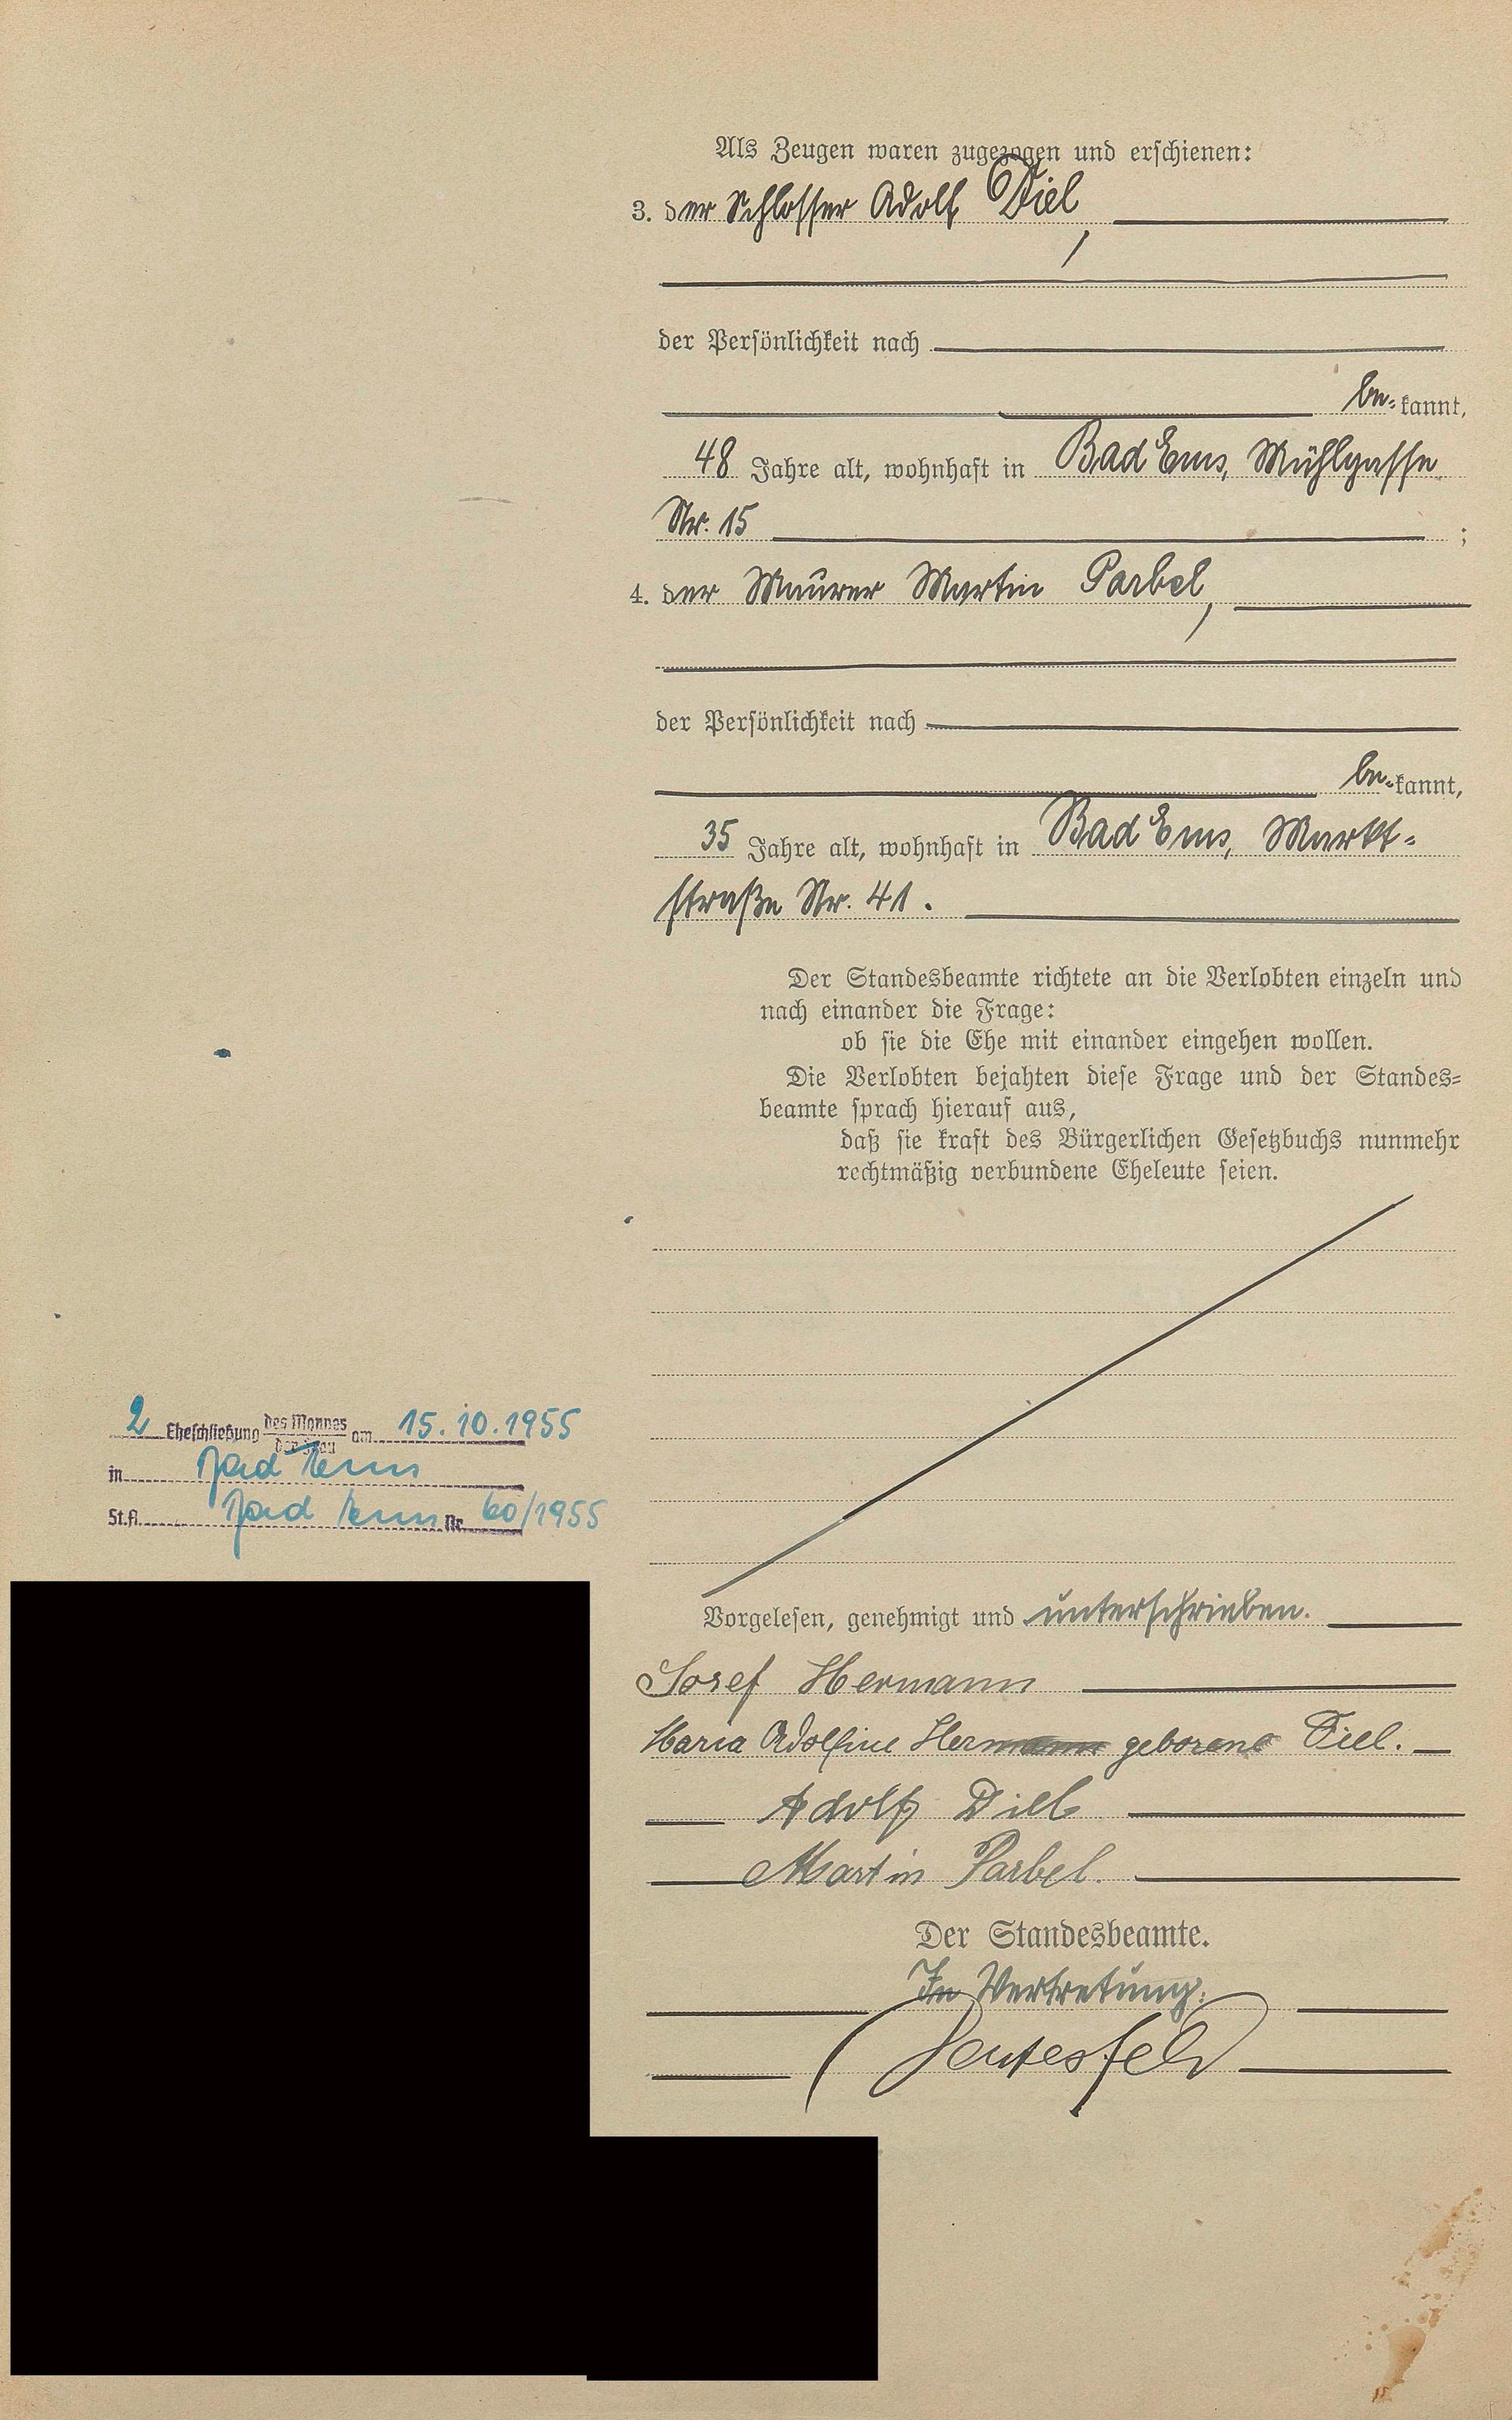 Als Zeugen waren zugezogen und erschienen:
3. der Schlosser Adolf Diel,
der Persönlichkeit nach
be=kannt,
48 Jahre alt, wohnhaft in Bad Ems, Mühlgasse
Nr. 15 ;
4. der Maurer Martin Parbel,
der Persönlichkeit nach
be=kannt,
35 Jahre alt, wohnhaft in Bad Ems, Markt=
straße Nr. 41.
Der Standesbeamte richtete an die Verlobten einzeln und
nach einander die Frage:
ob sie die Ehe mit einander eingehen wollen.
Die Verlobten bejahten diese Frage und der Standes=
beamte sprach hierauf aus,
daß sie kraft des Bürgerlichen Gesetzbuchs nunmehr
rechtmäßig verbundene Eheleute seien.
2 Eheschließung des Mannes der Frau am 15.10.1955
in Bad Ems
St.A. Bad Ems Nr. 60/1955
Vorgelesen, genehmigt und unterschrieben.
Josef Hermann
Maria Adolfine Hermann geborene Diel.
Adolf Diel
Martin Parbel.
Der Standesbeamte.
In Vertretung: